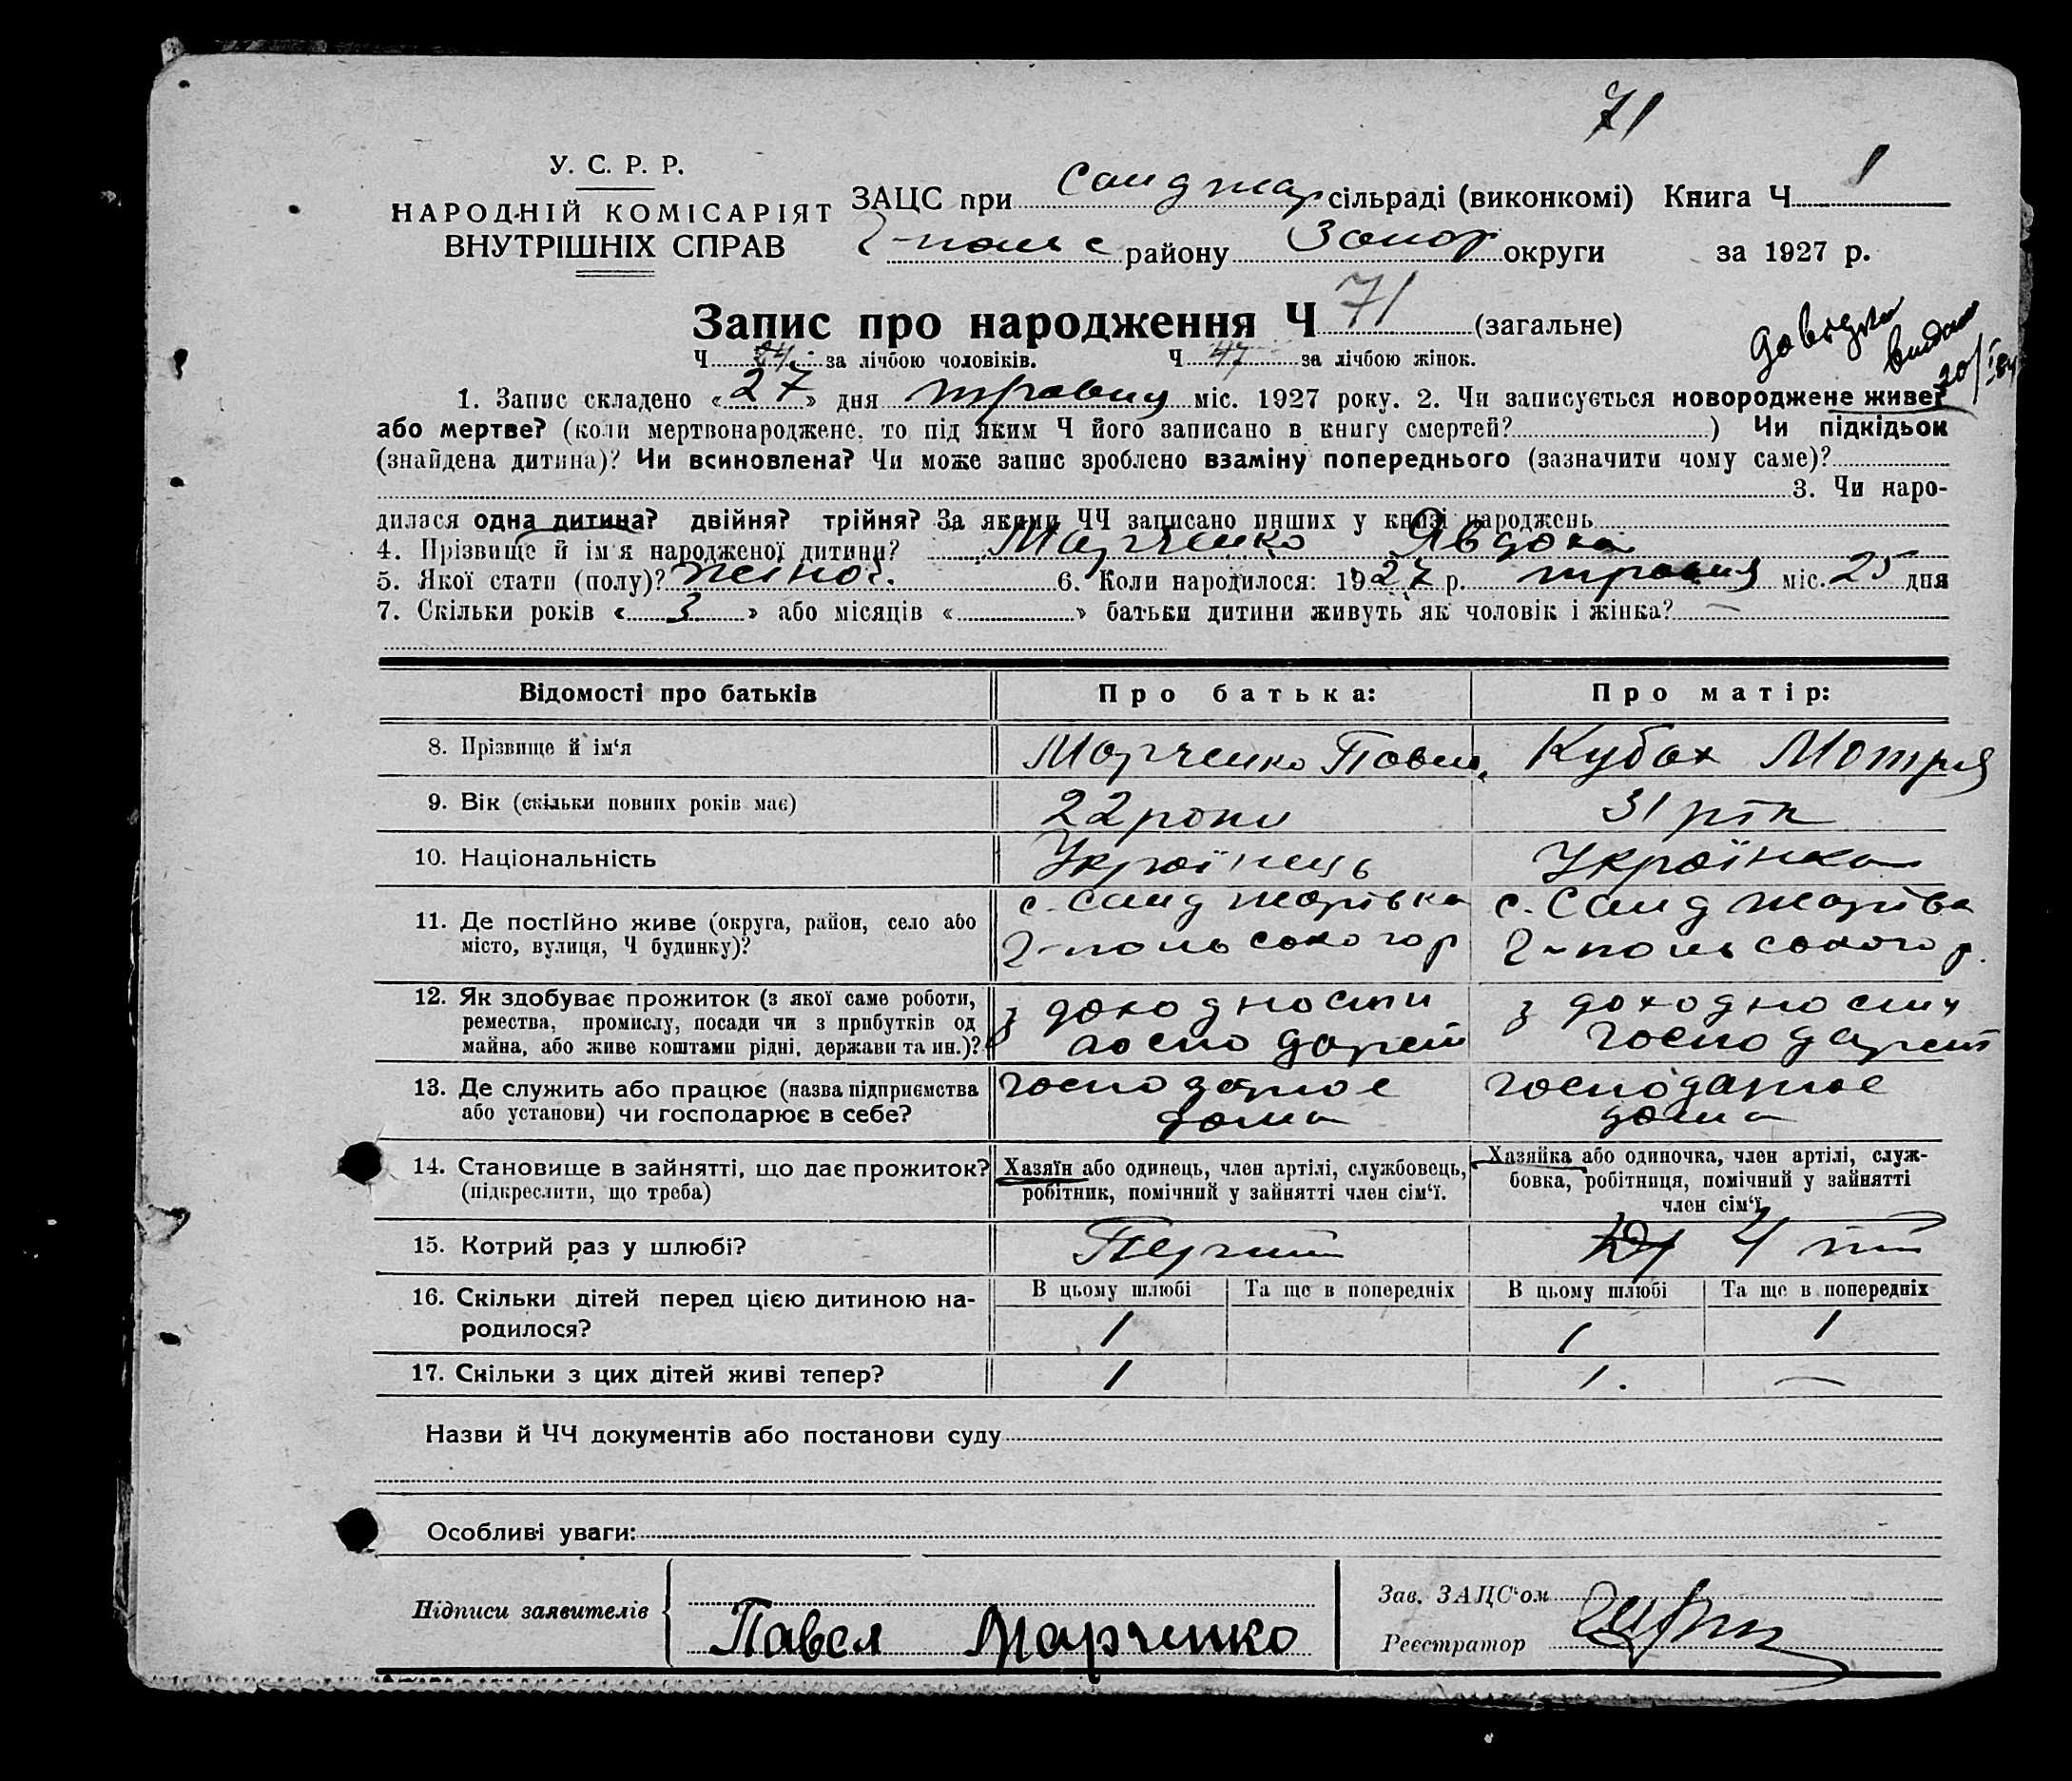 71
У. С. Р. Р.
НАРОДНІЙ КОМІСАРІЯТ
ВНУТРІШНІХ СПРАВ
ЗАЦС при Санджар сільраді (виконкомі) Книга Ч 1
району Запор округи за 1927 р.
Запис про народження Ч 71 (загальне)
Ч 24 за лічбою чоловіків. Ч 47 за лічбою жінок.
довідка
видан
1. Запис складено «27» дня травня міс. 1927 року. 2. Чи записується новороджене живе?
або мертве? (коли мертвонароджене, то під яким Ч його записано в книгу смертей? ) Чи підкідьок
(знайдена дитина)? Чи всиновлена? Чи може запис зроблено взаміну попереднього (зазначити чому саме)?
3. Чи наро-
дилася одна дитина? двійня? трійня? За якими ЧЧ записано инших у книзі народжень
4. Прізвище й ім'я народженої дитини? Марченко Явдоха
5. Якої стати (полу)? жіноч. 6. Коли народилося: 1927 р. травня міс. 25 дня
7. Скільки років «3» або місяців « » батьки дитини живуть як чоловік і жінка? —
Відомості про батьків Про батька: Про матір:
8. Прізвище й ім'я Марченко Павло Кубах Мотря
9. Вік (скільки повних років має) 22 роки 31 рік
10. Національність Українець Українка
11. Де постІйно живе (округа, район, село або с. Санджарівка с. Санджарівка
місто, вулиця, Ч будинку)? 2-польського р 2-польського р.
12. Як здобуває прожиток (з якої саме роботи, з доходности з доходности
ремества, промислу, посади чи з прибутків од
майна, або живе коштами рідні, держави та ин.)? господарст господарст
13. Де служить або працює (назва підприємства господарює господарює
або установи) чи господарює в себе? дома дома
14. Становище в зайнятті, що дає прожиток? Хазяїн або одинець, член артілі, службовець, Хазяйка або одиночка, член артілі, служ-
(підкреслити, що треба) робітник, помічний у зайнятті член сім'ї. бовка, робітниця, помічний у зайнятті
член сім'ї
15. Котрий раз у шлюбі? Перший 4
16. Скільки дітей перед цією дитиною на- В цьому шлюбі Та ще в попередніх В цьому шлюбі Та ще в попередніх
родилося? 1 1 1
17. Скільки з цих дітей живі тепер? 1 1. —
Назви й ЧЧ документів або постанови суду
Особливі уваги:
Підписи заявителів Зав. ЗАЦС'ом
Павел Марченко Реєстратор